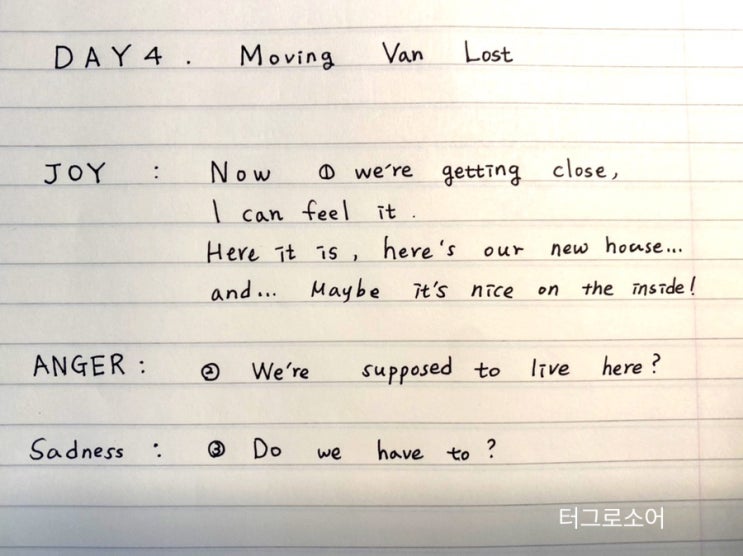 DAY 4. Moving Van Lost
JOY : Now ① we're getting close,
I can feel it.
Here it is, here's our new house...
and... Maybe it's nice on the inside!
ANGER : ② We're supposed to live here?
Sadness : ③ Do we have to?
터그로소어